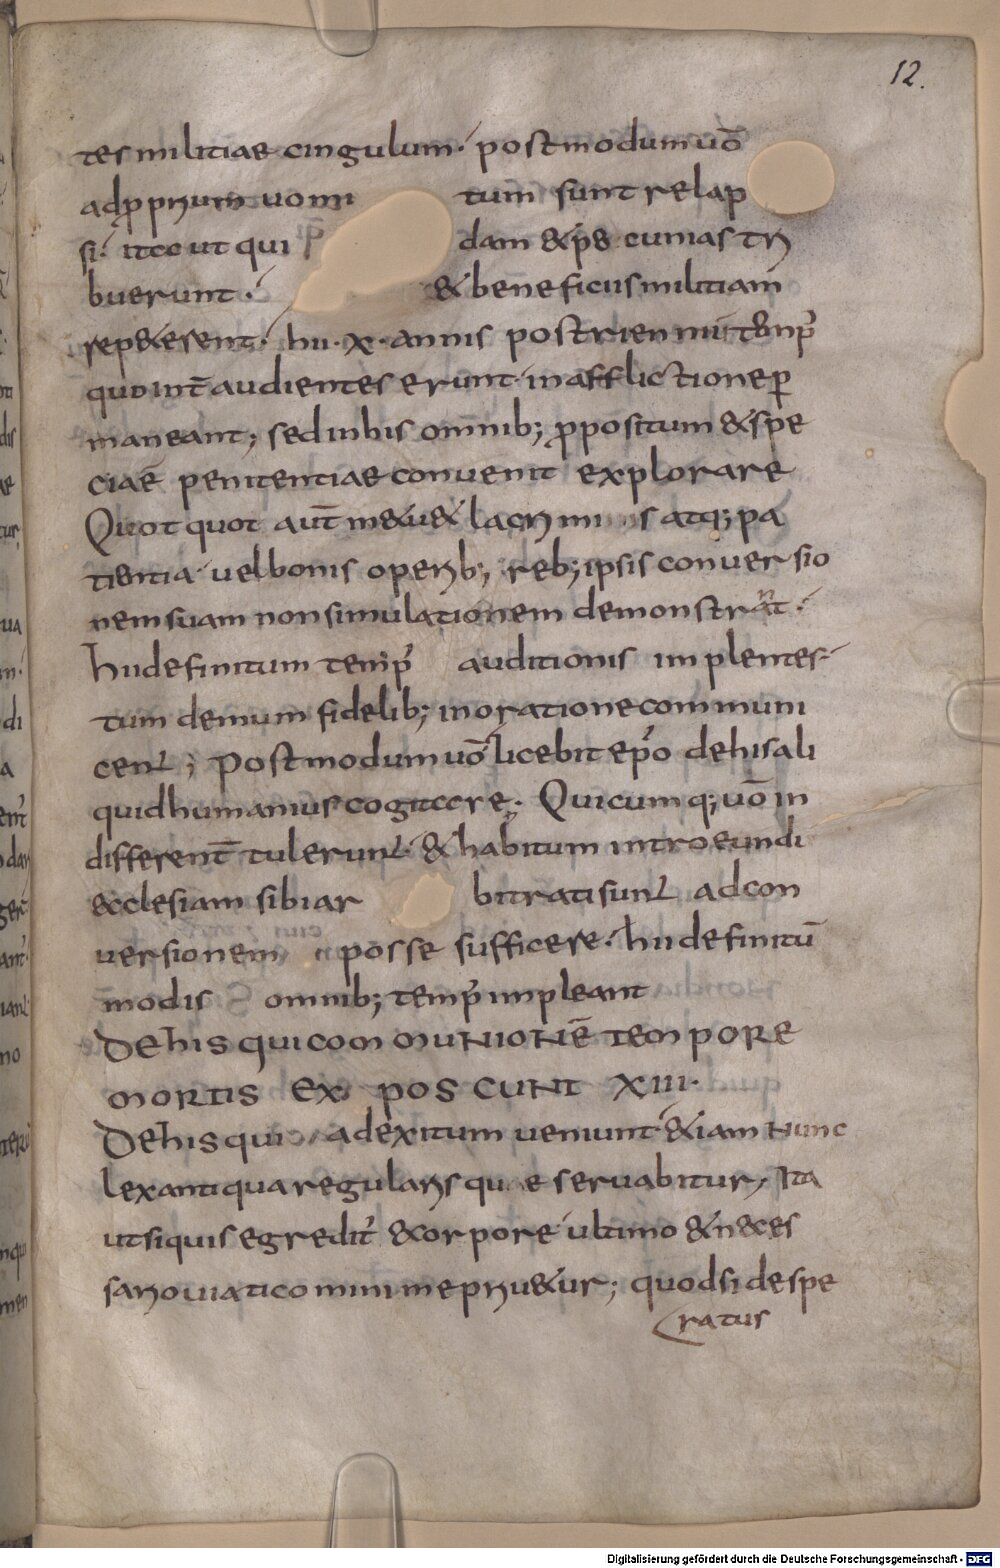 12.
tes militiae cingulum· postmodum uō
ad ꝓprium uomi tum sunt relap
si· ita ut qui dam & p̄& cunias tri
buerunt· & beneficiis militiam
rep&erent· hii· x· annis post triennii temp̄
quo int̄ audientes erunt· in afflictione ꝑ
maneant; sed in his omnib; ꝓpositum & spe
ciaē penitentiae convenit explorare
Quot quot aut̄ m&u& lacrimis atq; pa
tientia· vel bonis operib; reb; ipsis conversio
nem suam non simulationem demonstrant·
hii definitum temp̄ auditionis implentes·
tum demum fidelib; in oratione communi
cent; Postmodum uō licebit ep̄o de his ali
quid humanius cogitare· Quicumq; uō in
different̄ tulerunt· & habitum introeundi
ecclesiam sibi ar bitrati sunt ad con
versionem posse sufficere· hii definitū
modis omnib; temp̄ impleant
De his qui communionē tempore
mortis exposcunt XIII·
De his qui ad exitum veniunt· &iam nunc
lex antiqua regularis quae servabitur, Ita
ut si quis egredit̄ & corpore· ultimo & nec&es
sario viatico minime priu&ur; quod si despe
ratus
Digitalisierung gefördert durch die Deutsche Forschungsgemeinschaft - DFG